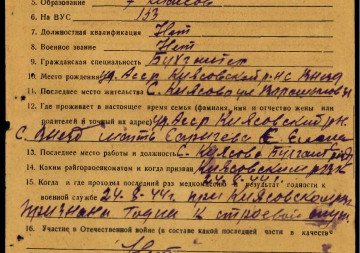 5. Образование 7 классов
6. На ВУС 133
7. Должностная квалификация Нет
8. Военное звание Нет
9. Гражданская специальность Бухгалтер
10. Место рождения уд. Асср Киясовский р-н с
11. Последнее место жительства с. Киясово ул
12. Где проживает в настоящее время семья (фамилия, имя и отчество жены или
родителей и точный их адрес) уд. Асср Киясовский р-н
с. мать Е.
13. Последнее место работы и должность с. Киясово
14. Каким райгорвоенкоматом и когда призван Киясовским РВК
24.8.44 г.
15. Когда и где проходил последний раз медкомиссию и результат годности к
военной службе 24-8-44 г. при Киясовском рвк
признан годен к строевой службе
16. Участие в Отечественной войне (в составе какой последней части в качестве
Нет